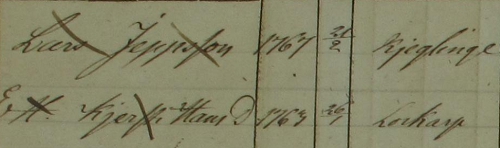 Lars Jeppsson 1767 21/2 Kjeglinge
E. H. Kjersti Hans D 1763 26/7 Lockarp